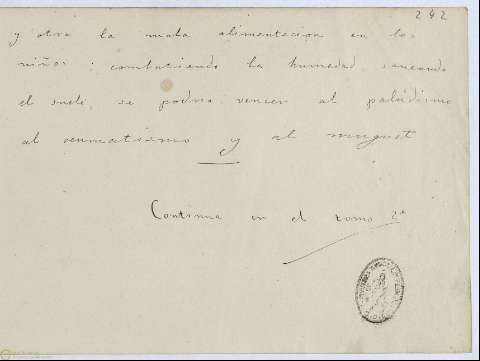 242
y otra la mala alimentacion en los
niños; combatiendo la humedad, saneando
el suelo, se podria vencer al paludismo
al reumatismo y al muguet
Continua en el tomo 2º